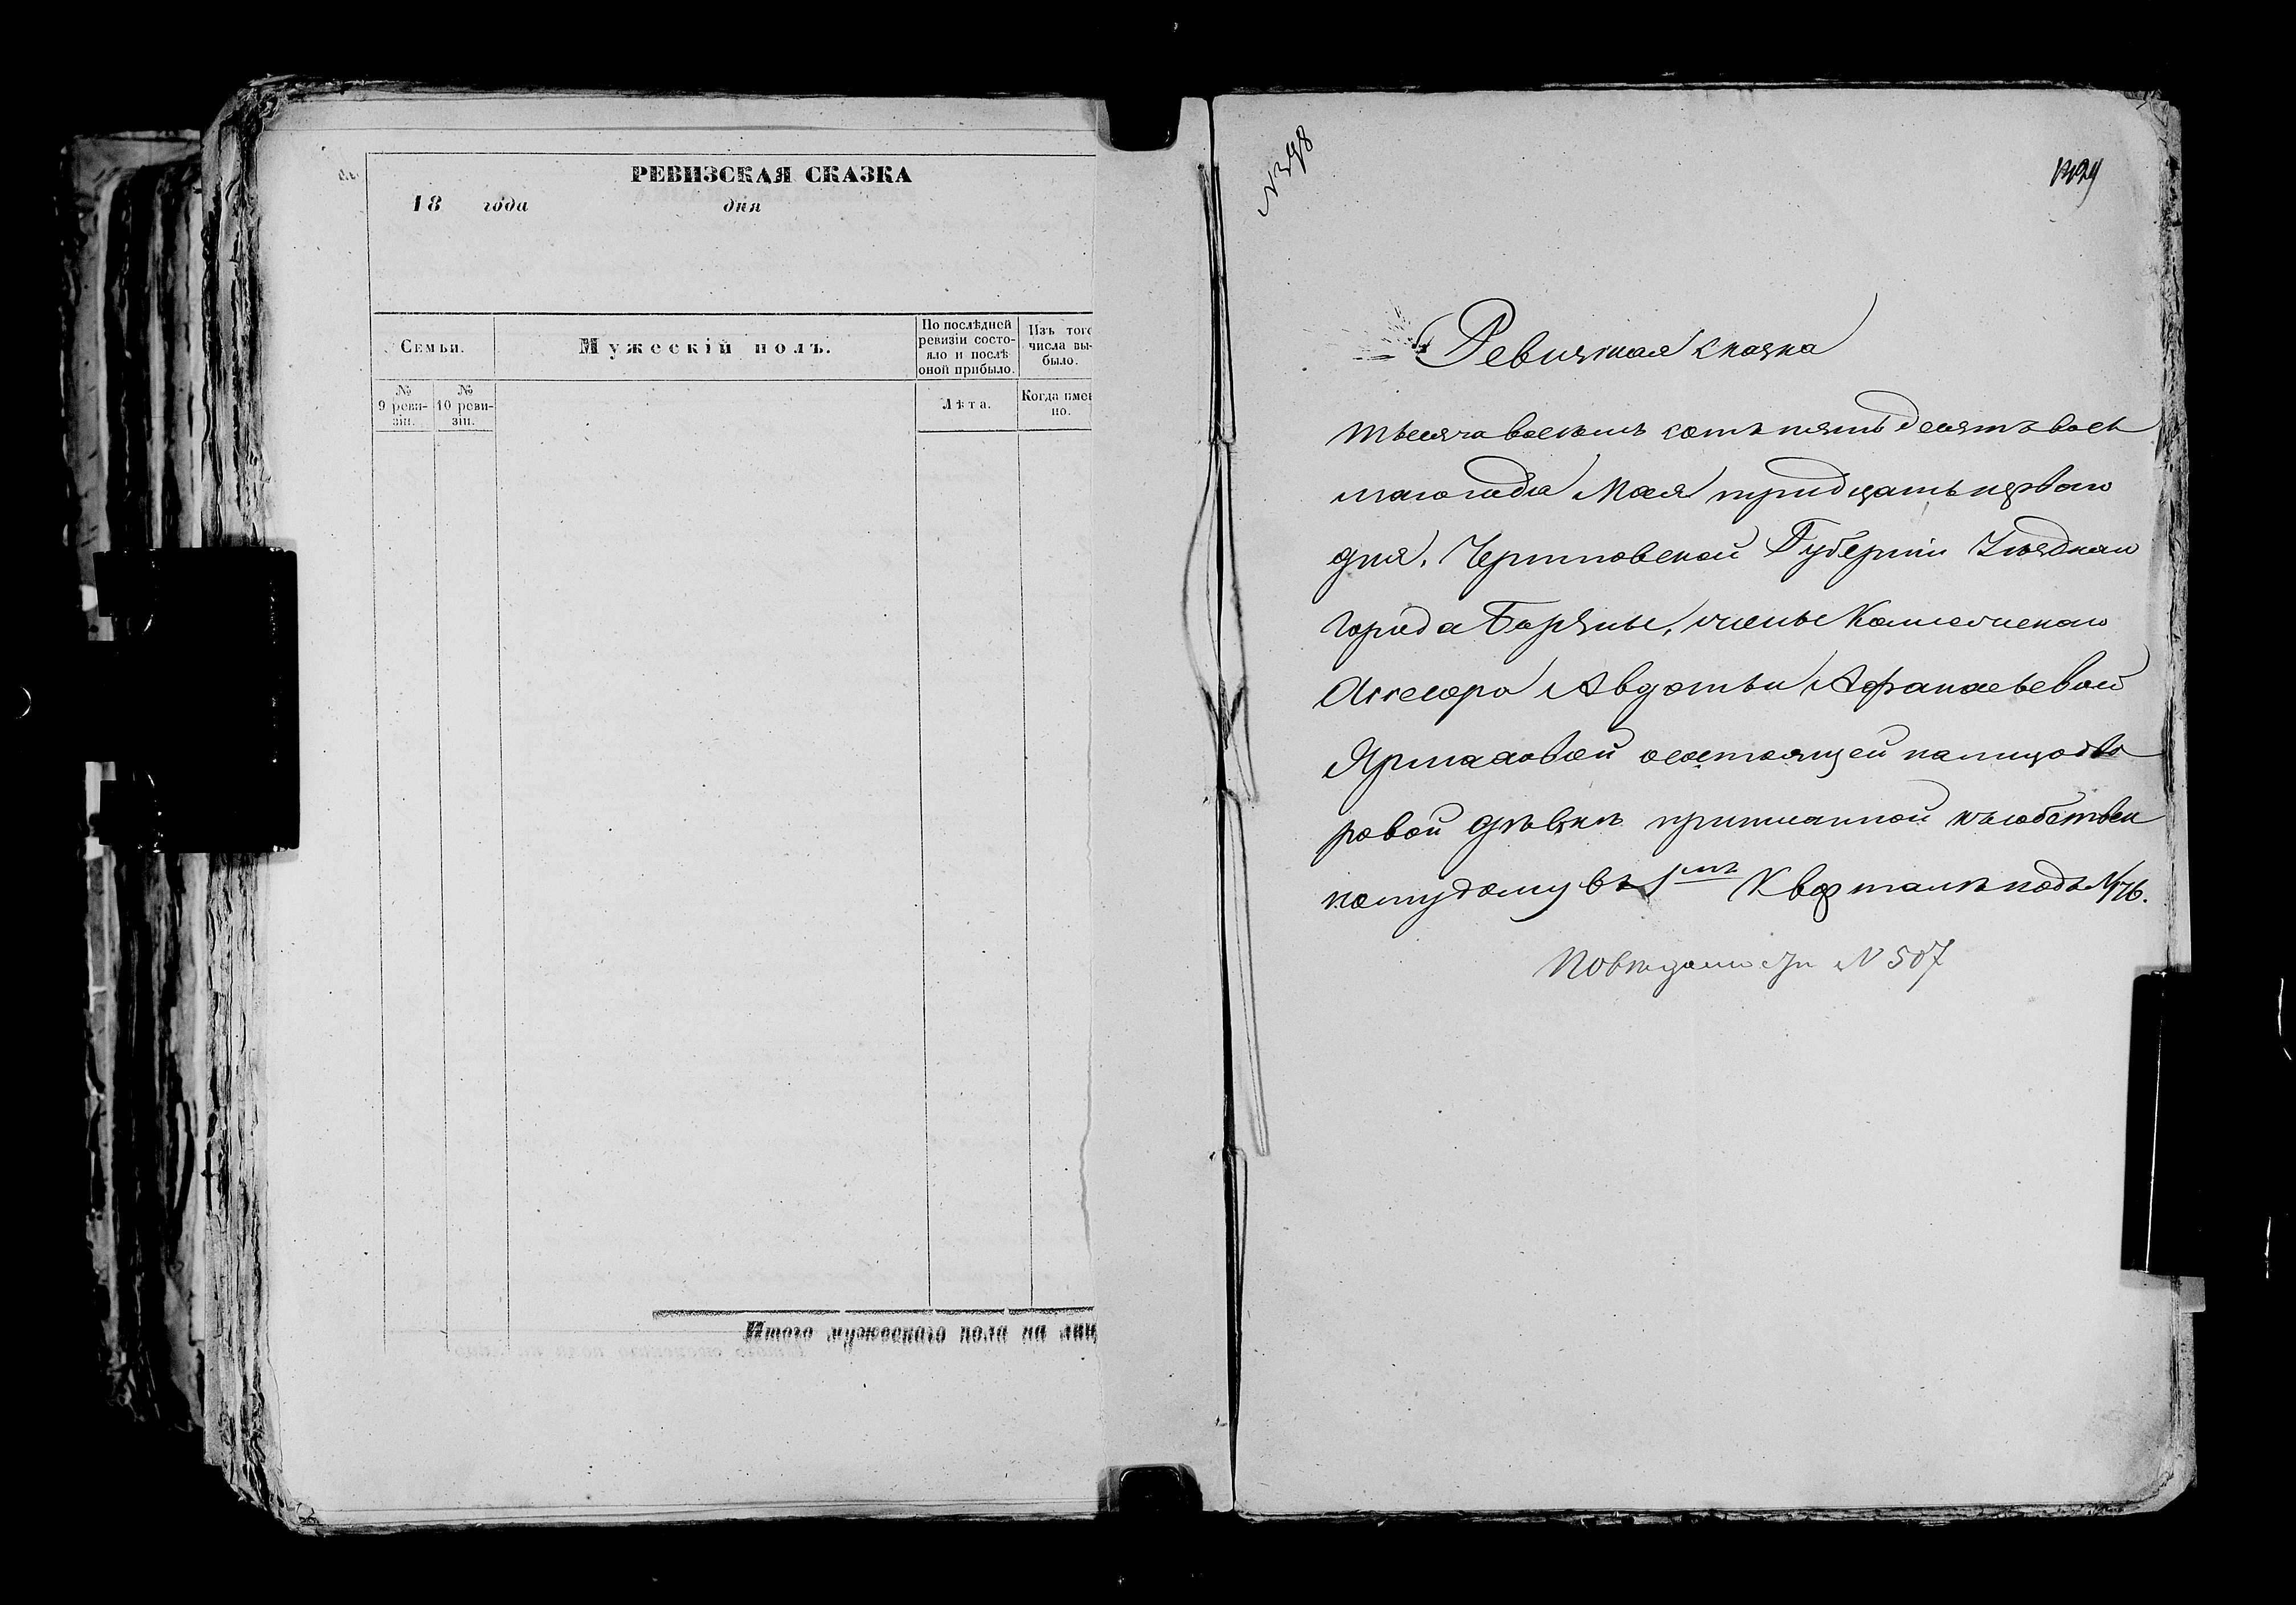 РЕВИЗСКАЯ СКАЗКА
18 года дня
Семьи.
Мужескій полъ.
По послѣдней
ревизіи состо-
яло и послѣ
оной прибыло.
Изъ того
числа вы-
было.
№
9 реви-
зіи.
№
10 реви-
зіи.
Лѣта.
Когда имен
но.
Итого мужескаго пола на лиц
N 398
Ревизская сказка
тысяча восемъ сотъ пятьдесятъ вось
маго года Мая тридцать перваго
дня, Черниговской Губерніи Уѣзднаго
города Борзны, жены Колежскаго
Ассесора Авдотьи Афанасьевой
состоящей на лицо дво
ровой дѣвкѣ приписанной къ собствен
ному дому въ 1мъ Кварталѣ подъ № 76.
По вѣдомости N 507